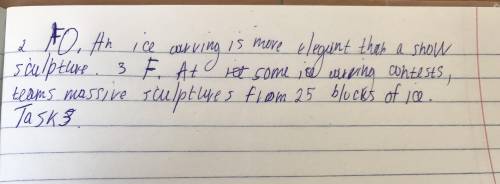 2 FO. An ice carving is more elegant than a show
sculpture. 3 F. At some ice carving contests,
teams massive sculptures from 25 blocks of ice.
Task3.